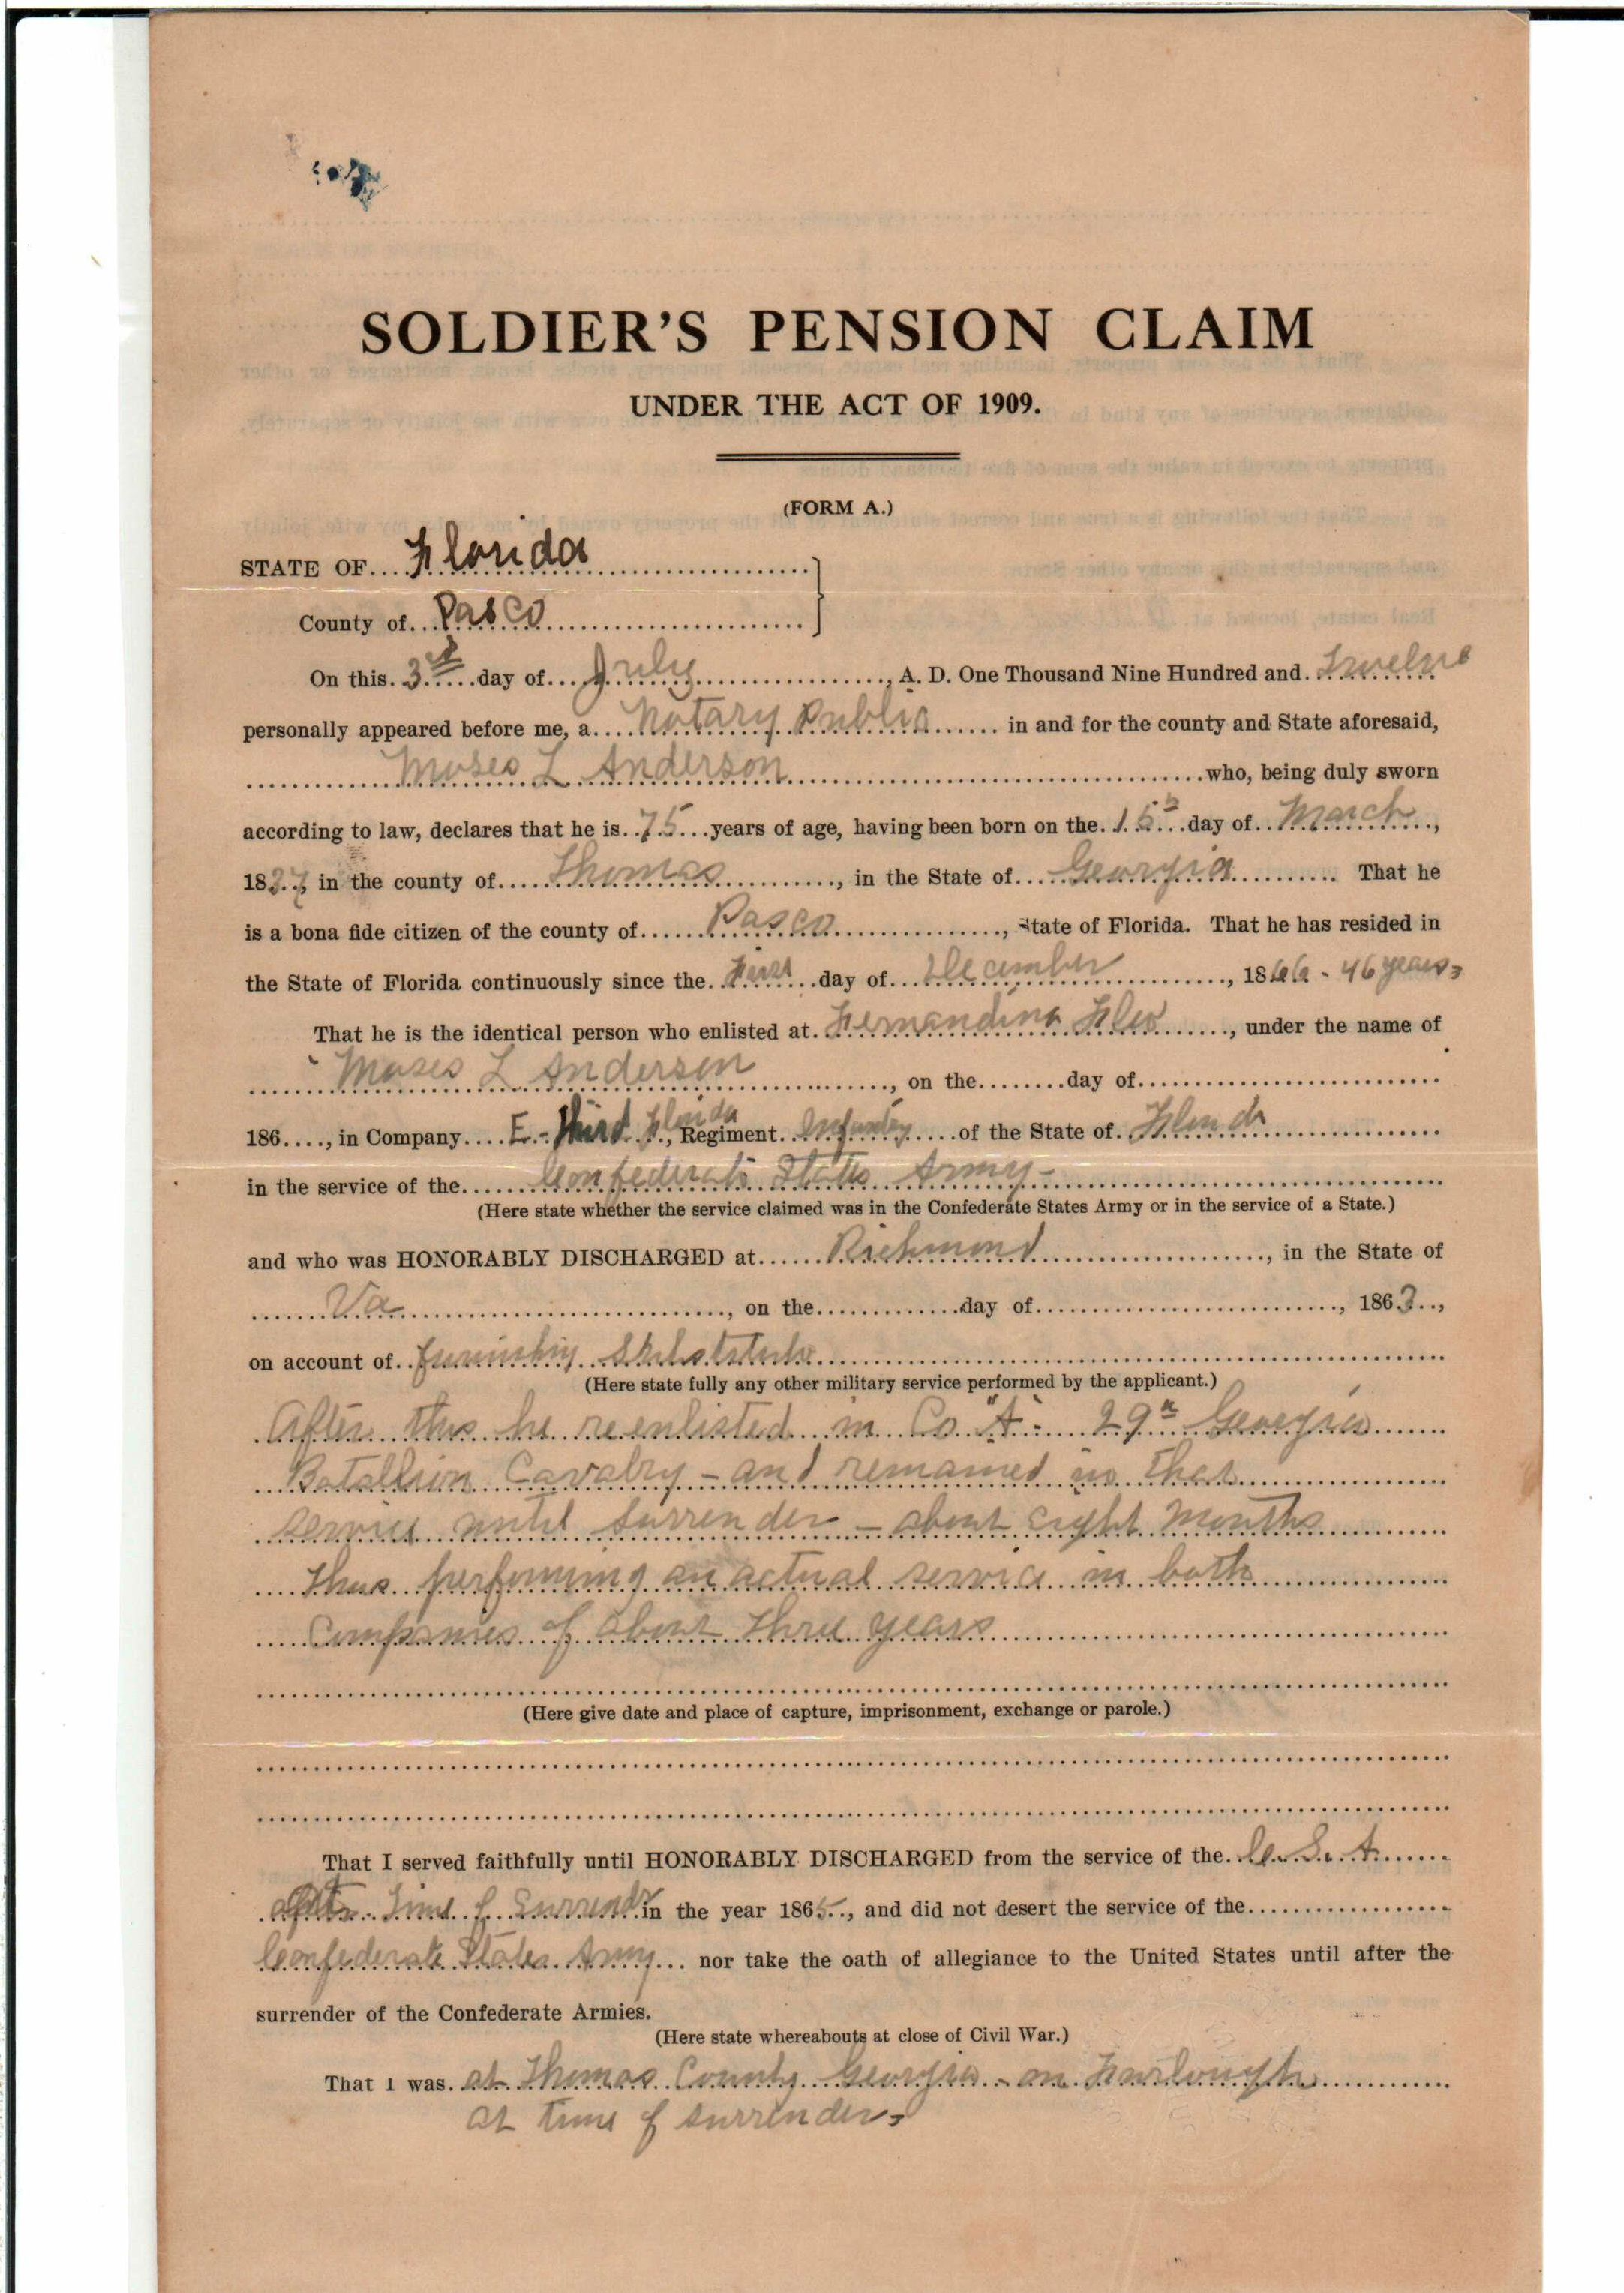 SOLDIER'S PENSION CLAIM
UNDER THE ACT OF 1909.
(FORM A.)
STATE OF Florida
County of Pasco
On this 3rd day of July, A. D. One Thousand Nine Hundred and Twelve
personally appeared before me, a Notary Public in and for the county and State aforesaid,
Moses L Anderson who, being duly sworn
according to law, declares that he is 75 years of age, having been born on the 15th day of March,
1837, in the county of Thomas, in the State of Georgia That he
is a bona fide citizen of the county of Pasco, State of Florida. That he has resided in
the State of Florida continuously since the First day of December, 1866 - 46 years
That he is the identical person who enlisted at Fernandina Fla, under the name of
Moses L Anderson, on the day of
186, in Company E - Third Florida, Regiment Infantry of the State of Florida
in the service of the Confederate States Army -
(Here state whether the service claimed was in the Confederate States Army or in the service of a State.)
and who was HONORABLY DISCHARGED at Richmond, in the State of
Va, on the day of, 1863,
on account of furnishing Substitute
(Here state fully any other military service performed by the applicant.)
After this he reenlisted in Co "A" - 29th Georgia
Batallion Cavalry - and remained in that
service until surrender - about eight months
thus performing an actual service in both
Companies of about three years
(Here give date and place of capture, imprisonment, exchange or parole.)
That I served faithfully until HONORABLY DISCHARGED from the service of the C. S. A.
after time of Surrender in the year 1865, and did not desert the service of the
Confederate States Army nor take the oath of allegiance to the United States until after the
surrender of the Confederate Armies.
(Here state whereabouts at close of Civil War.)
That I was at Thomas County Georgia - on Furlough
at time of surrender -